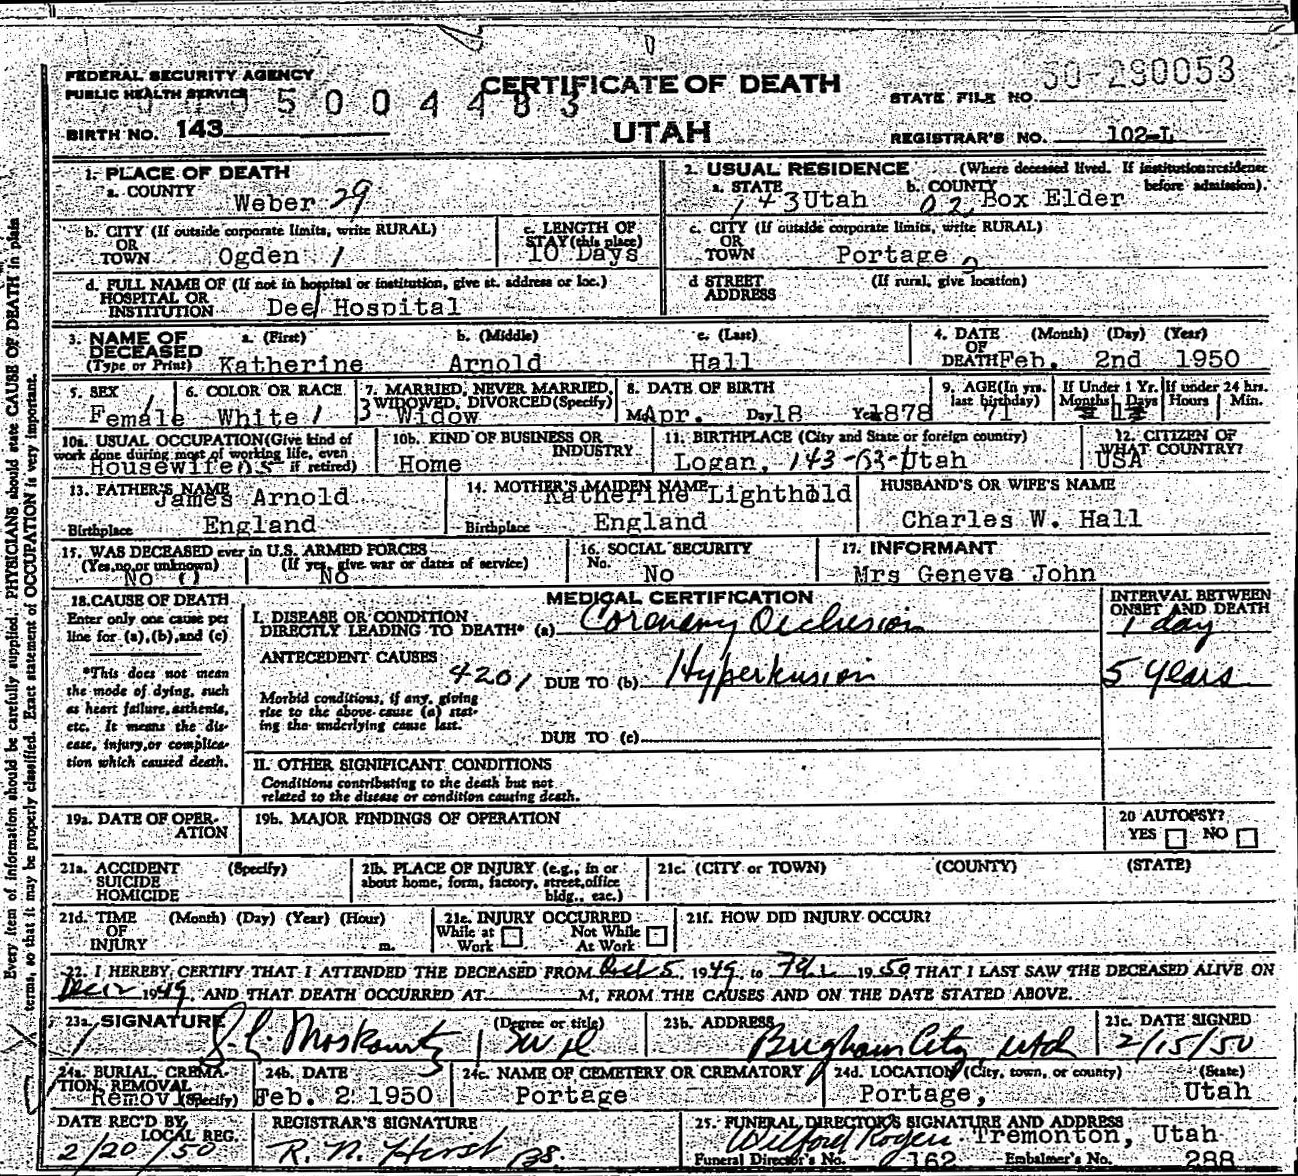 FEDERAL SECURITY AGENCY
PUBLIC HEALTH SERVICE
5004483
BIRTH NO. 143
CERTIFICATE OF DEATH
UTAH
STATE FILE NO. 50-290053
REGISTRAR'S NO. 102-L
1. PLACE OF DEATH
a. COUNTY
Weber 29
2. USUAL RESIDENCE (Where deceased lived. If institution: residence before admission).
a. STATE 143 Utah b. COUNTY 02 Box Elder
b. CITY (If outside corporate limits, write RURAL)
OR
TOWN Ogden 1
c. LENGTH OF
STAY (this place)
10 Days
c. CITY (If outside corporate limits, write RURAL)
OR
TOWN Portage 0
d. FULL NAME OF (If not in hospital or institution, give st. address or loc.)
HOSPITAL OR
INSTITUTION Dee Hospital
d STREET (If rural, give location)
ADDRESS
3. NAME OF
DECEASED
(Type or Print)
a. (First) b. (Middle) c. (Last)
Katherine Arnold Hall
4. DATE (Month) (Day) (Year)
OF
DEATH Feb. 2nd 1950
5. SEX
Female 1
6. COLOR OR RACE
White 1
7. MARRIED, NEVER MARRIED,
WIDOWED, DIVORCED (Specify)
3 Widow
8. DATE OF BIRTH
Mo Apr. Day 18 Year 1878
9. AGE (In yrs. last birthday)
71
If Under 1 Yr.
Months Days
If under 24 hrs.
Hours Min.
10a. USUAL OCCUPATION (Give kind of
work done during most of working life, even
if retired)
Housewife
10b. KIND OF BUSINESS OR
INDUSTRY
Home
11. BIRTHPLACE (City and State or foreign country)
Logan, 143-03- Utah
12. CITIZEN OF
WHAT COUNTRY?
USA
13. FATHER'S NAME
James Arnold
Birthplace England
14. MOTHER'S MAIDEN NAME
Katherine Lighthold
Birthplace England
HUSBAND'S OR WIFE'S NAME
Charles W. Hall
15. WAS DECEASED ever in U.S. ARMED FORCES
(Yes, no, or unknown) (If yes, give war or dates of service)
No No
16. SOCIAL SECURITY
No.
No
17. INFORMANT
Mrs Geneva John
18. CAUSE OF DEATH
Enter only one cause per
line for (a), (b), and (c)
*This does not mean
the mode of dying, such
as heart failure, asthenia,
etc. It means the dis-
ease, injury, or complica-
tion which caused death.
MEDICAL CERTIFICATION
INTERVAL BETWEEN
ONSET AND DEATH
I. DISEASE OR CONDITION
DIRECTLY LEADING TO DEATH* (a) Coronary Occlusion 1 day
ANTECEDENT CAUSES
4201 DUE TO (b) Hypertension 5 years
Morbid conditions, if any, giving
rise to the above cause (a) stat-
ing the underlying cause last.
DUE TO (c)
II. OTHER SIGNIFICANT CONDITIONS
Conditions contributing to the death but not
related to the disease or condition causing death.
19a. DATE OF OPER-
ATION
19b. MAJOR FINDINGS OF OPERATION
20 AUTOPSY?
YES NO
21a. ACCIDENT (Specify)
SUICIDE
HOMICIDE
21b. PLACE OF INJURY (e.g., in or
about home, form, factory, street, office
bldg., etc.)
21c. (CITY or TOWN) (COUNTY) (STATE)
21d. TIME (Month) (Day) (Year) (Hour)
OF
INJURY m.
21e. INJURY OCCURRED
While at Work
Not While At Work
21f. HOW DID INJURY OCCUR?
22. I HEREBY CERTIFY THAT I ATTENDED THE DECEASED FROM 5, 1949, to Feb 2 1950 THAT I LAST SAW THE DECEASED ALIVE ON
Dec 12 1949, AND THAT DEATH OCCURRED AT M, FROM THE CAUSES AND ON THE DATE STATED ABOVE.
23a. SIGNATURE (Degree or title)
Moskowitz MD
23b. ADDRESS
Brigham City, Utah
23c. DATE SIGNED
2/15/50
24a. BURIAL, CREMA-
TION, REMOVAL
(Specify)
Removl
24b. DATE
Feb. 2 1950
24c. NAME OF CEMETERY OR CREMATORY
Portage
24d. LOCATION (City, town, or county) (State)
Portage, Utah
DATE REC'D BY
LOCAL REG.
2/20/50
REGISTRAR'S SIGNATURE
R. N. Hirst
25. FUNERAL DIRECTOR'S SIGNATURE AND ADDRESS
Wilford Rogers Tremonton, Utah
Funeral Director's No. 162 Embalmer's No. 288
Every item of information should be carefully supplied. PHYSICIANS should state CAUSE OF DEATH in plain
terms, so that it may be properly classified. Exact statement of OCCUPATION is very important.